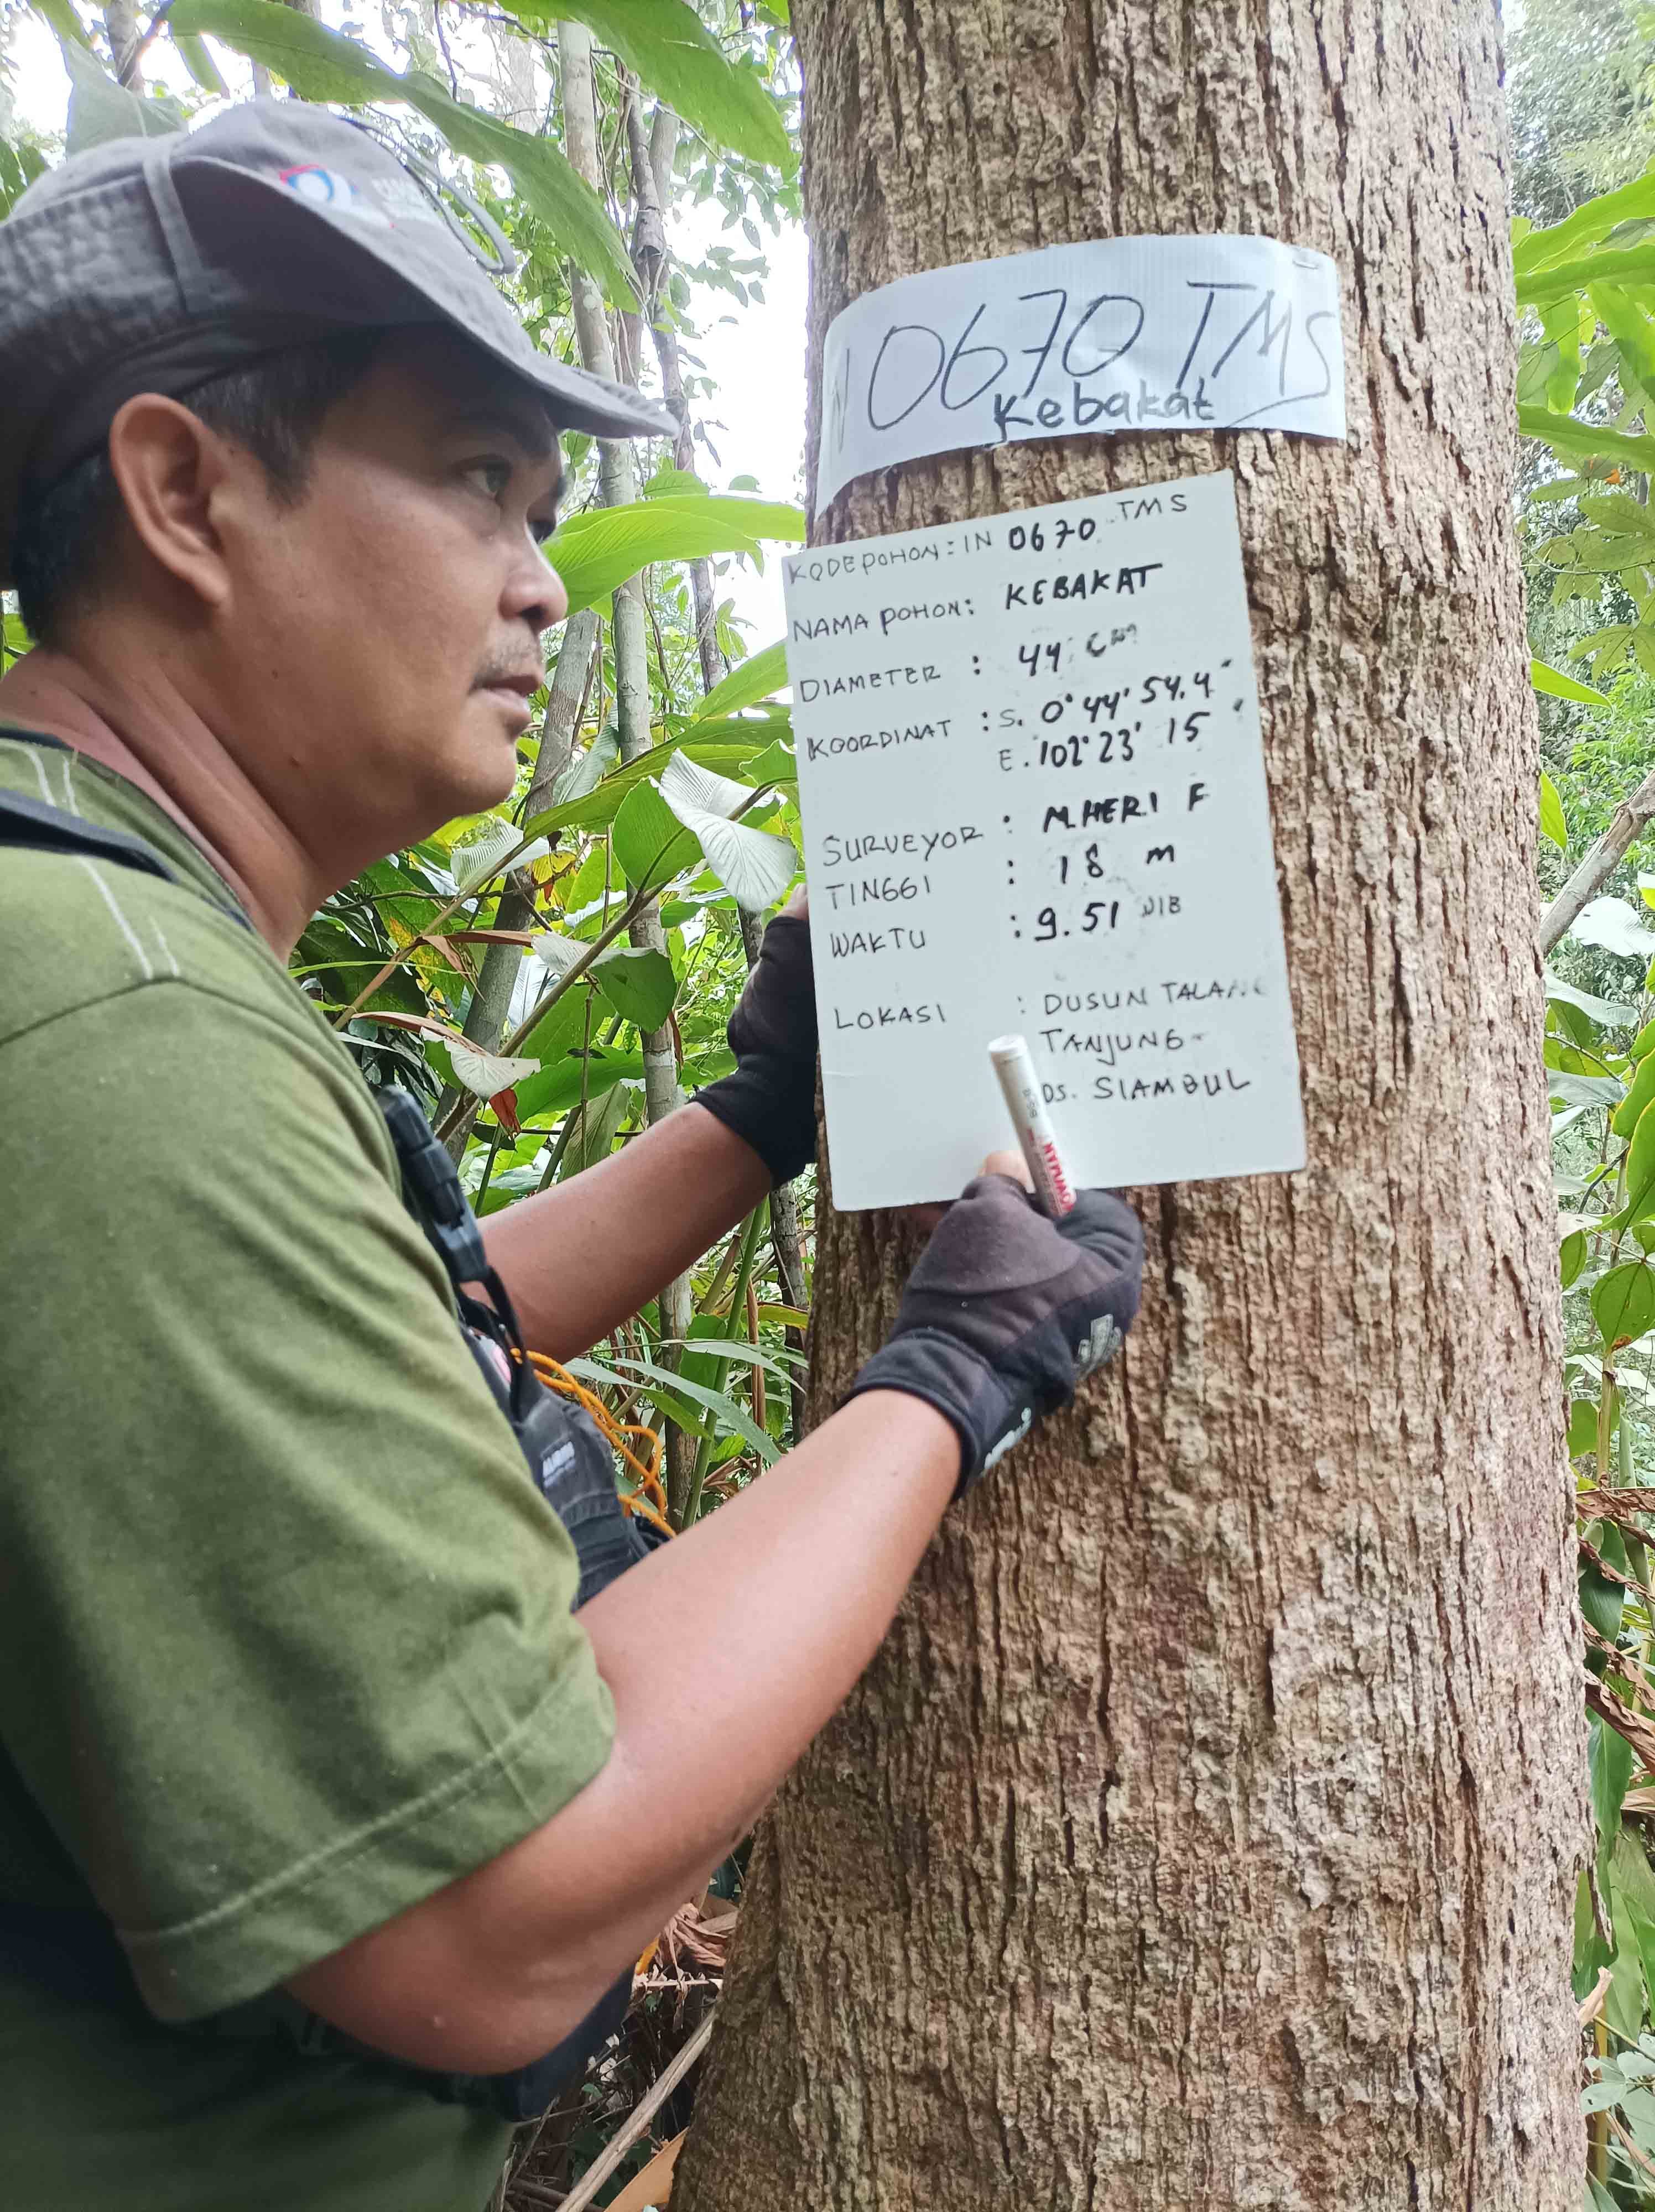 N 0670 TMS
Kebakat
KODE POHON : IN 0670 TMS
NAMA POHON : KEBAKAT
DIAMETER : 44 cm
KOORDINAT : S. 0° 44' 54.4"
E. 102° 23' 15"
SURVEYOR : M.HERI F
TINGGI : 18 m
WAKTU : 9.51 WIB
LOKASI : DUSUN TALANG
TANJUNG
DS. SIAMBUL
SNOWMAN